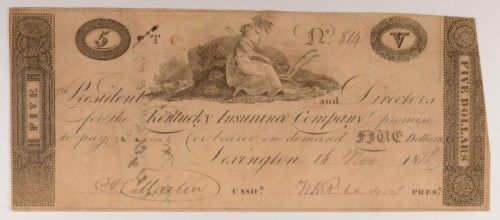 5 T No. 814 V
FIVE
The President and Directors
for the Kentucky Insurance Company promise
to pay or bearer on demand FIVE Dollars
Lexington 16 Nov 181
CASHR. W Richardson PREST.
FIVE DOLLARS